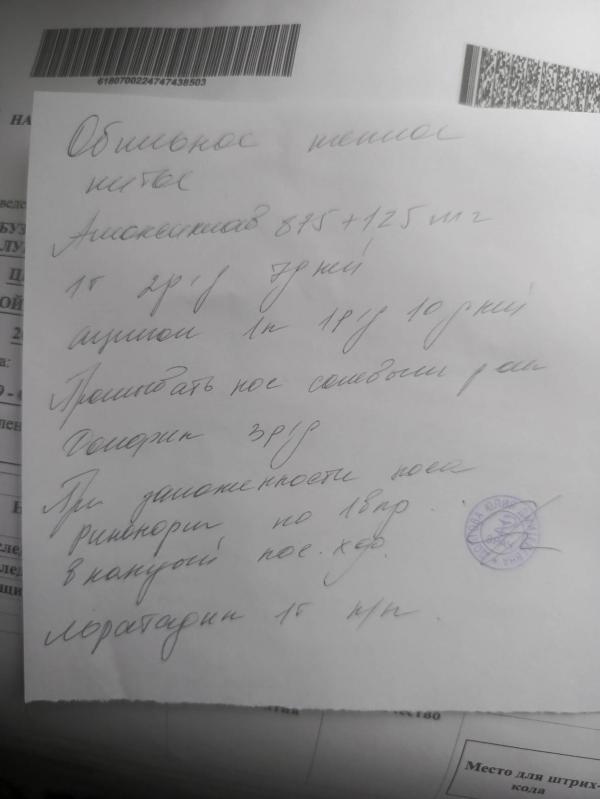 6180700224747438503
НА
Обильное теплое
питье
Амоксиклав 875+125 мг
1т 2р/д 7дней
аципол 1к 1р/д 10 дней
Промывать нос солевыми
3р/д
При заложенности носа
ринонорм по 1впр
в каждый нос. ход.
Лоратадин 1т н/н.
БУЗ
ОЙ
Место для штрих-
кода